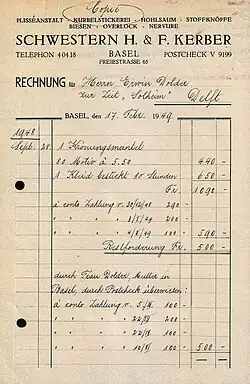 Copie
PLISSÉANSTALT · KURBELSTICKEREI · HOHLSAUM · STOFFKNÖPFE
BIESEN · OVERLOCK · NERVURE
SCHWESTERN H. & F. KERBER
TELEPHON 40418 BASEL POSTCHECK V 9199
FREIESTRASSE 65
RECHNUNG für Herrn Erwin Dolder
zur Zeit „Solheim" Delft
BASEL, den 17. Febr. 1949
1948
Sept. 28. 1 Krönungsmantel
80 Motiv à 5.50 440 —
1 Kleid bestickt 80 Stunden 650 —
Fr. 1090 —
à conto Zahlung v. 30/12/48 290 —
" " " 1/5/49 200 —
" " " 4/8/49 100 — 590 —
Restforderung Fr. 500 —
durch Frau Dolder, Mutter in
Basel, durch Postcheck überwiesen:
à conto Zahlung v. 100 —
" " " 100 —
" " " 100 —
" " " 100 —
" " " 100 — 500 —
— —